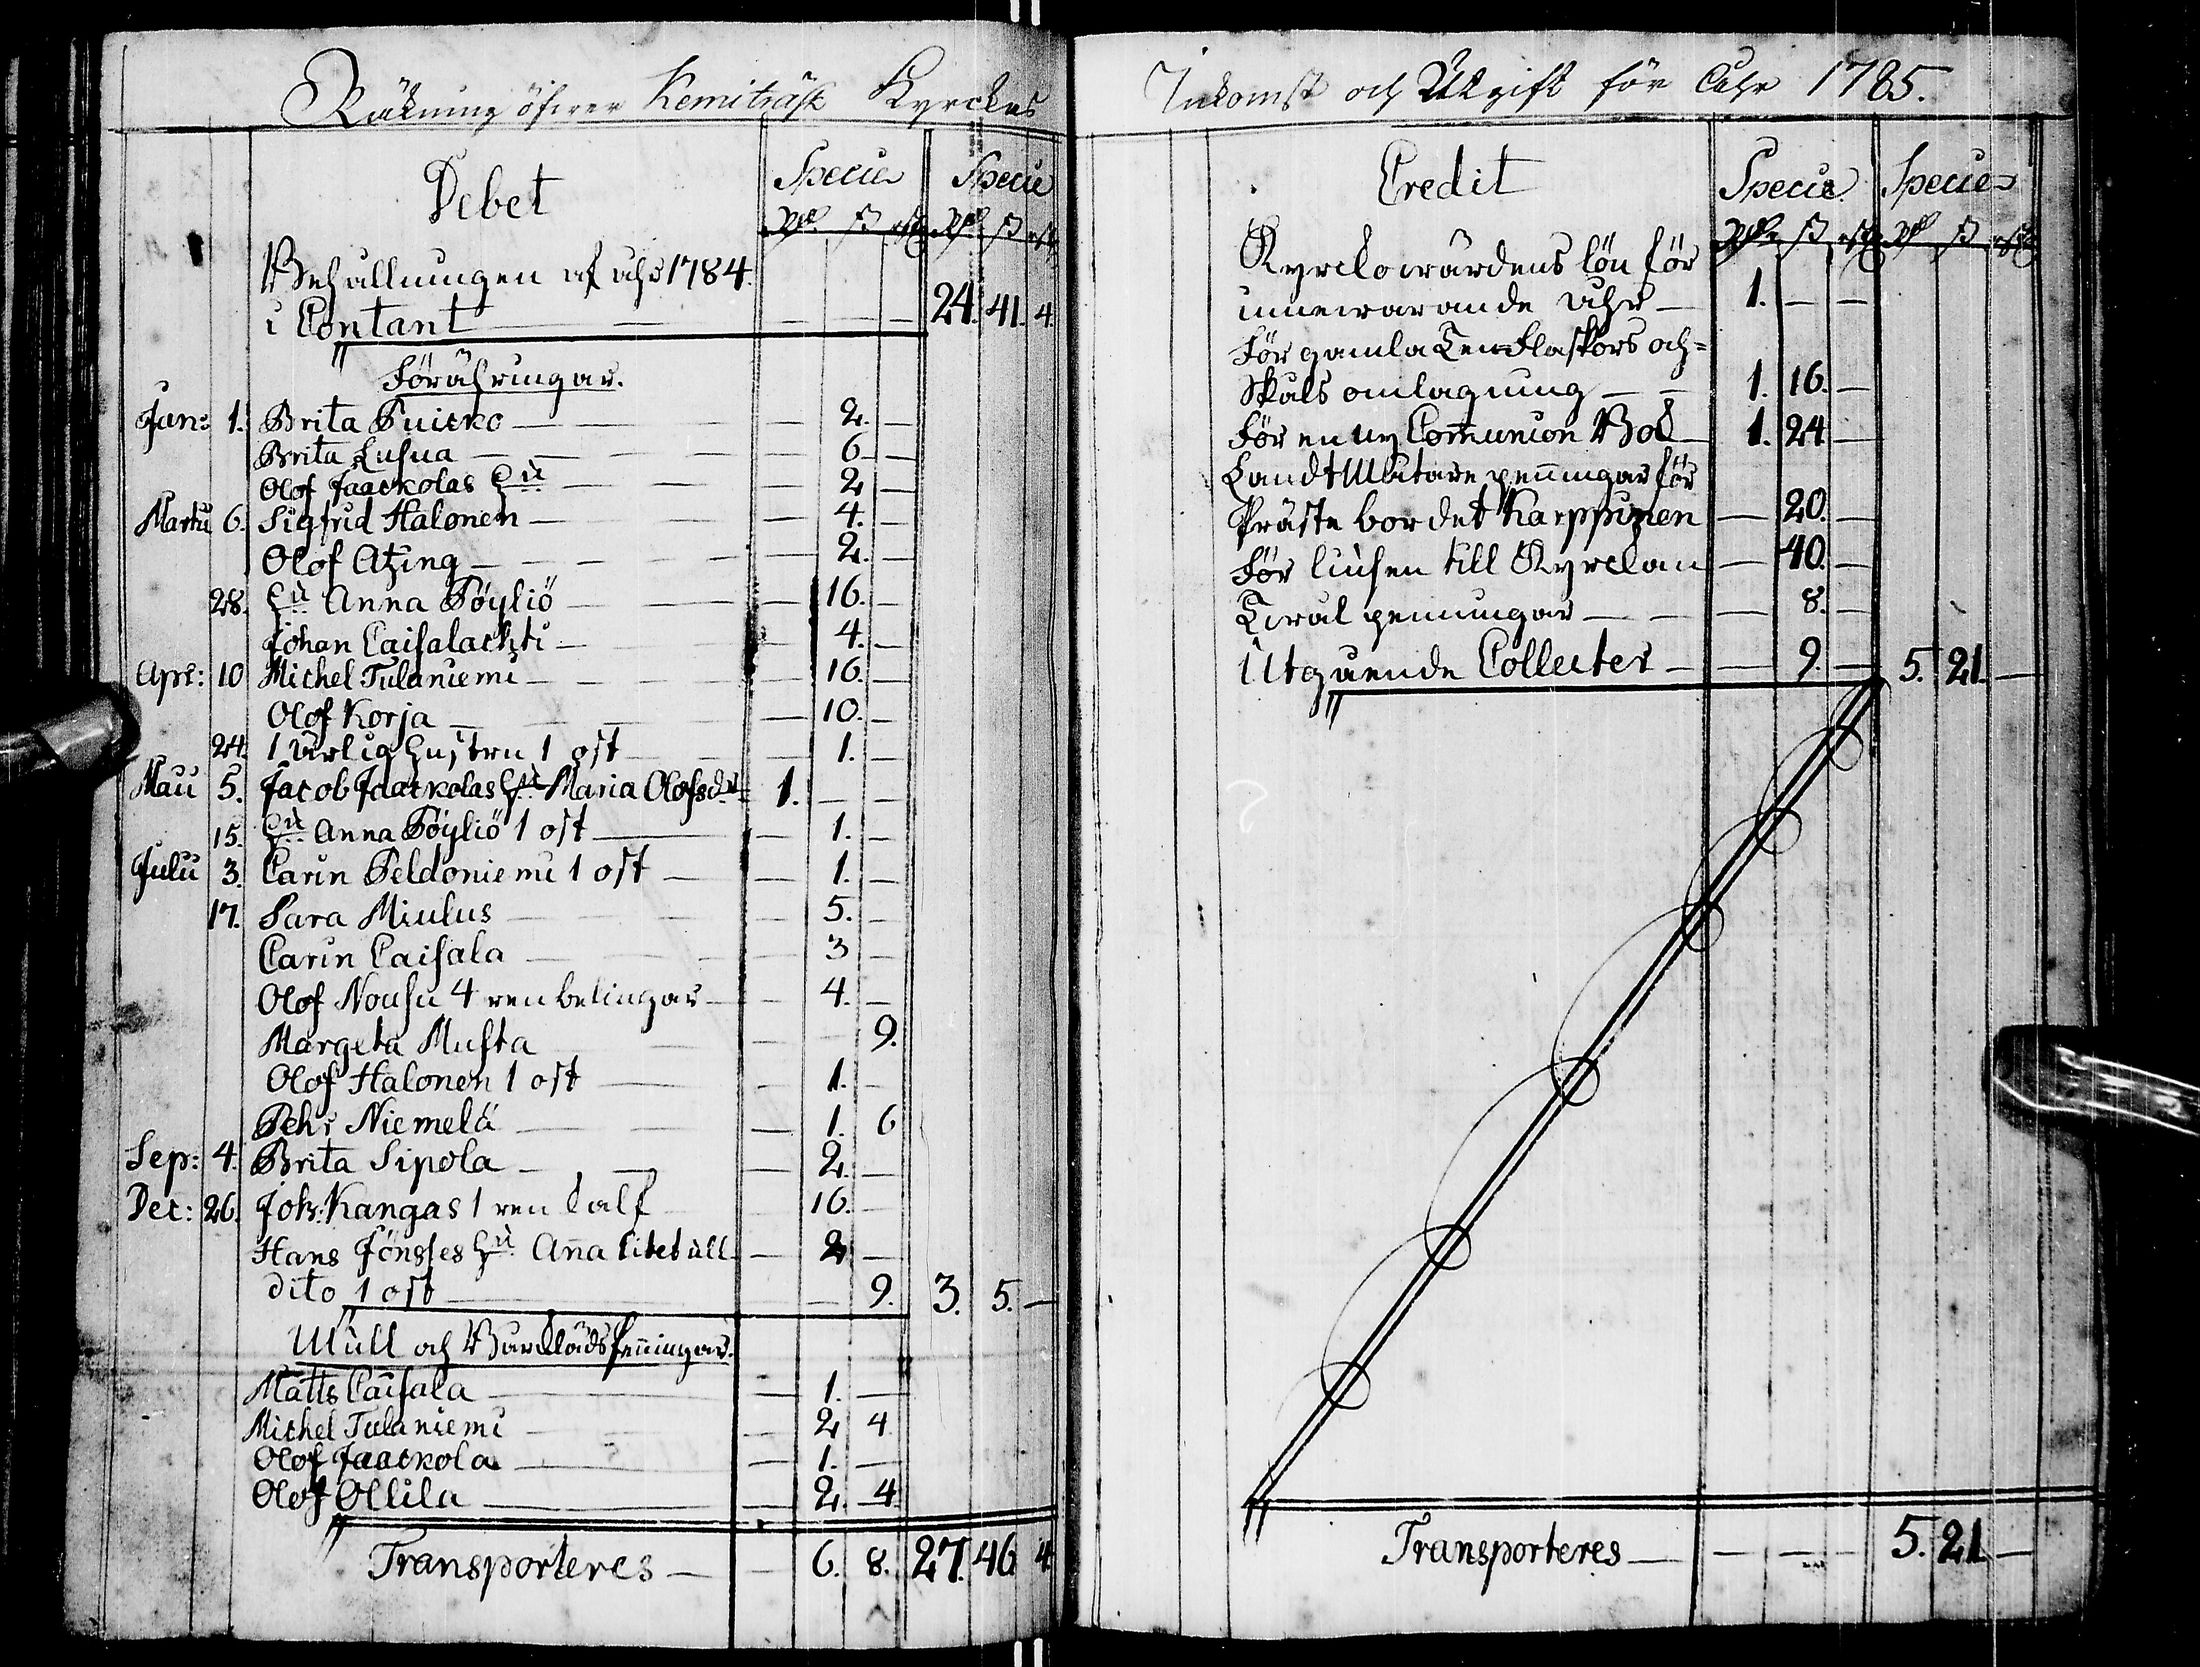 Räkning öfwer Kemiträsk Kyrckas
Debet Specie Specie
Rd ß rst Rd ß rst
Behållningen af åhr 1784.
i Contant — — — — 24. 41. 4.
Förähringar.
Jan: 1. Brita Puicko — 2. —
Brita Lusua — 6 —
Olof Jaackolas Hu — 2 —
Martii 6. Sigfrid Halonen — 4. —
Olof Atzing — 2. —
28. Hu Anna Pöyliö — 16. —
Johan Caisalachti — 4. —
Apr: 10 Michel Tulaniemi — 16. —
Olof Korja — 10. —
24. 1 ärlig hustru 1 ost — 1. —
Maii 5. Jacob Jaackolas Hu Maria Olofsdr 1. — —
15. Hu Anna Pöyliö 1 ost — 1. —
Julii 3. Carin Peldoniemi 1 ost — 1. —
17. Sara Miulus — 5. —
Carin Caisala — 3 —
Olof Nousu 4 renbelingar — 4. —
Margeta Musta — 9.
Olof Halonen 1 ost — 1. —
Pehr Niemelä — 1. 6
Sep: 4. Brita Sipola — 2. —
Dec: 26. Joh: Kangas 1 ren kalf 16. —
Hans Jönsses Hu Anna litet ull — 2 —
dito 1 ost — 9. 3. 5. —
Mull och Bårklädspenningar.
Matts Caisala — 1. —
Michel Tulaniemi 2 4
Olof Jaackola — 1. —
Olof Ollila — 2. 4
Transporteres — 6. 8. 27. 46 4
Inkomst och Utgift för Åhr 1785.
Credit Specie Specie
Rd ß rst Rd ß rst
Kyrckowärdens lön för
innewarande åhr — 1. — —
För gamla Ten-Flaskors och
Skåls omlagning — 1. 16. —
För en ny Communion Bok — 1. 24 —
Landtmätare penningar för
Prästebordet Karppinen — 20. —
För liusen till Kyrckan — 40. —
Tiral penningar — 8. —
Utgående Collecter — 9. — 5. 21. —
Transporteres — — — — 5. 21. —